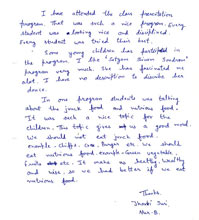 I have attended the class presentation
program. That was such a nice program. Every
student was looking nice and disciplined.
Every student was tried their best.
Some young children has participated in
the program. I like "Satyam Sivam Sundram"
program very much. She has fascinated me
alot. I have no description to discribe her
dance.
In one program students was talking
about the junk food and nutrious food.
It was such a nice topic for the
children. This topic gives us a good moral.
We should not eat junk food.
example - chips, burger etc. We should
eat nutrious food. example - Green vegetable
fruits etc. It make us healthy
and nice. so we had better if we eat
nutrious food.
Thanks.
Suri,
Nur-B.